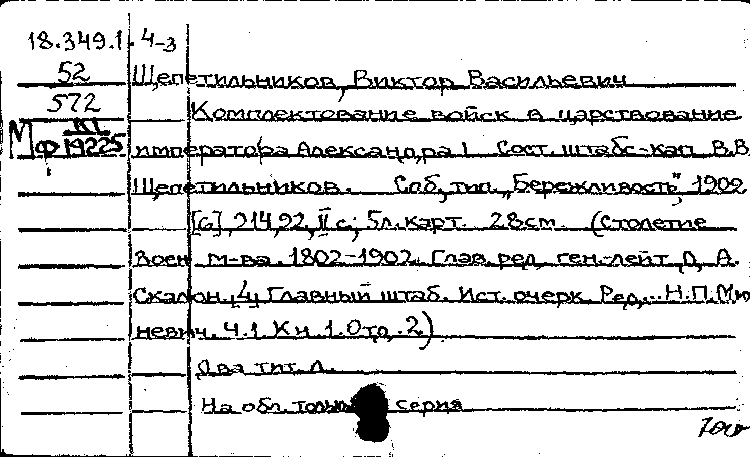 18.349.1.4-3
52 Щепетильников, Виктор Васильевич
572 Комплектование войск в царствование
МФ К1/19225 императора Александра I Сост. штабс-кап В.В
Щепетильников. Спб, тип. „Бережливость", 1902
[6], 214, 92, II с; 5л. карт. 28см. (Столетие
Воен м-ва. 1802-1902. Глав. ред. ген.-лейт Д. А.
Скалон. [4] Главный штаб. Ист. очерк Ред... Н.П.Мих
невич. Ч.1 Кн 1. Отд. 2)
Два тит. л.
На обл. только серия